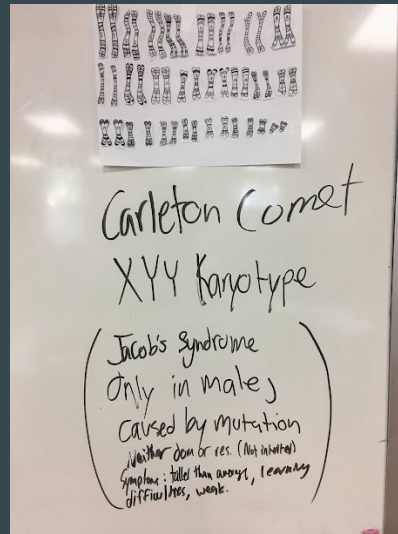 Carleton Comet
XYY Karyotype
(Jacob's Syndrome
Only in males
caused by mutation
Neither dom or res. (Not inherited)
Symptoms: taller than average, learning
difficulties, weak.)